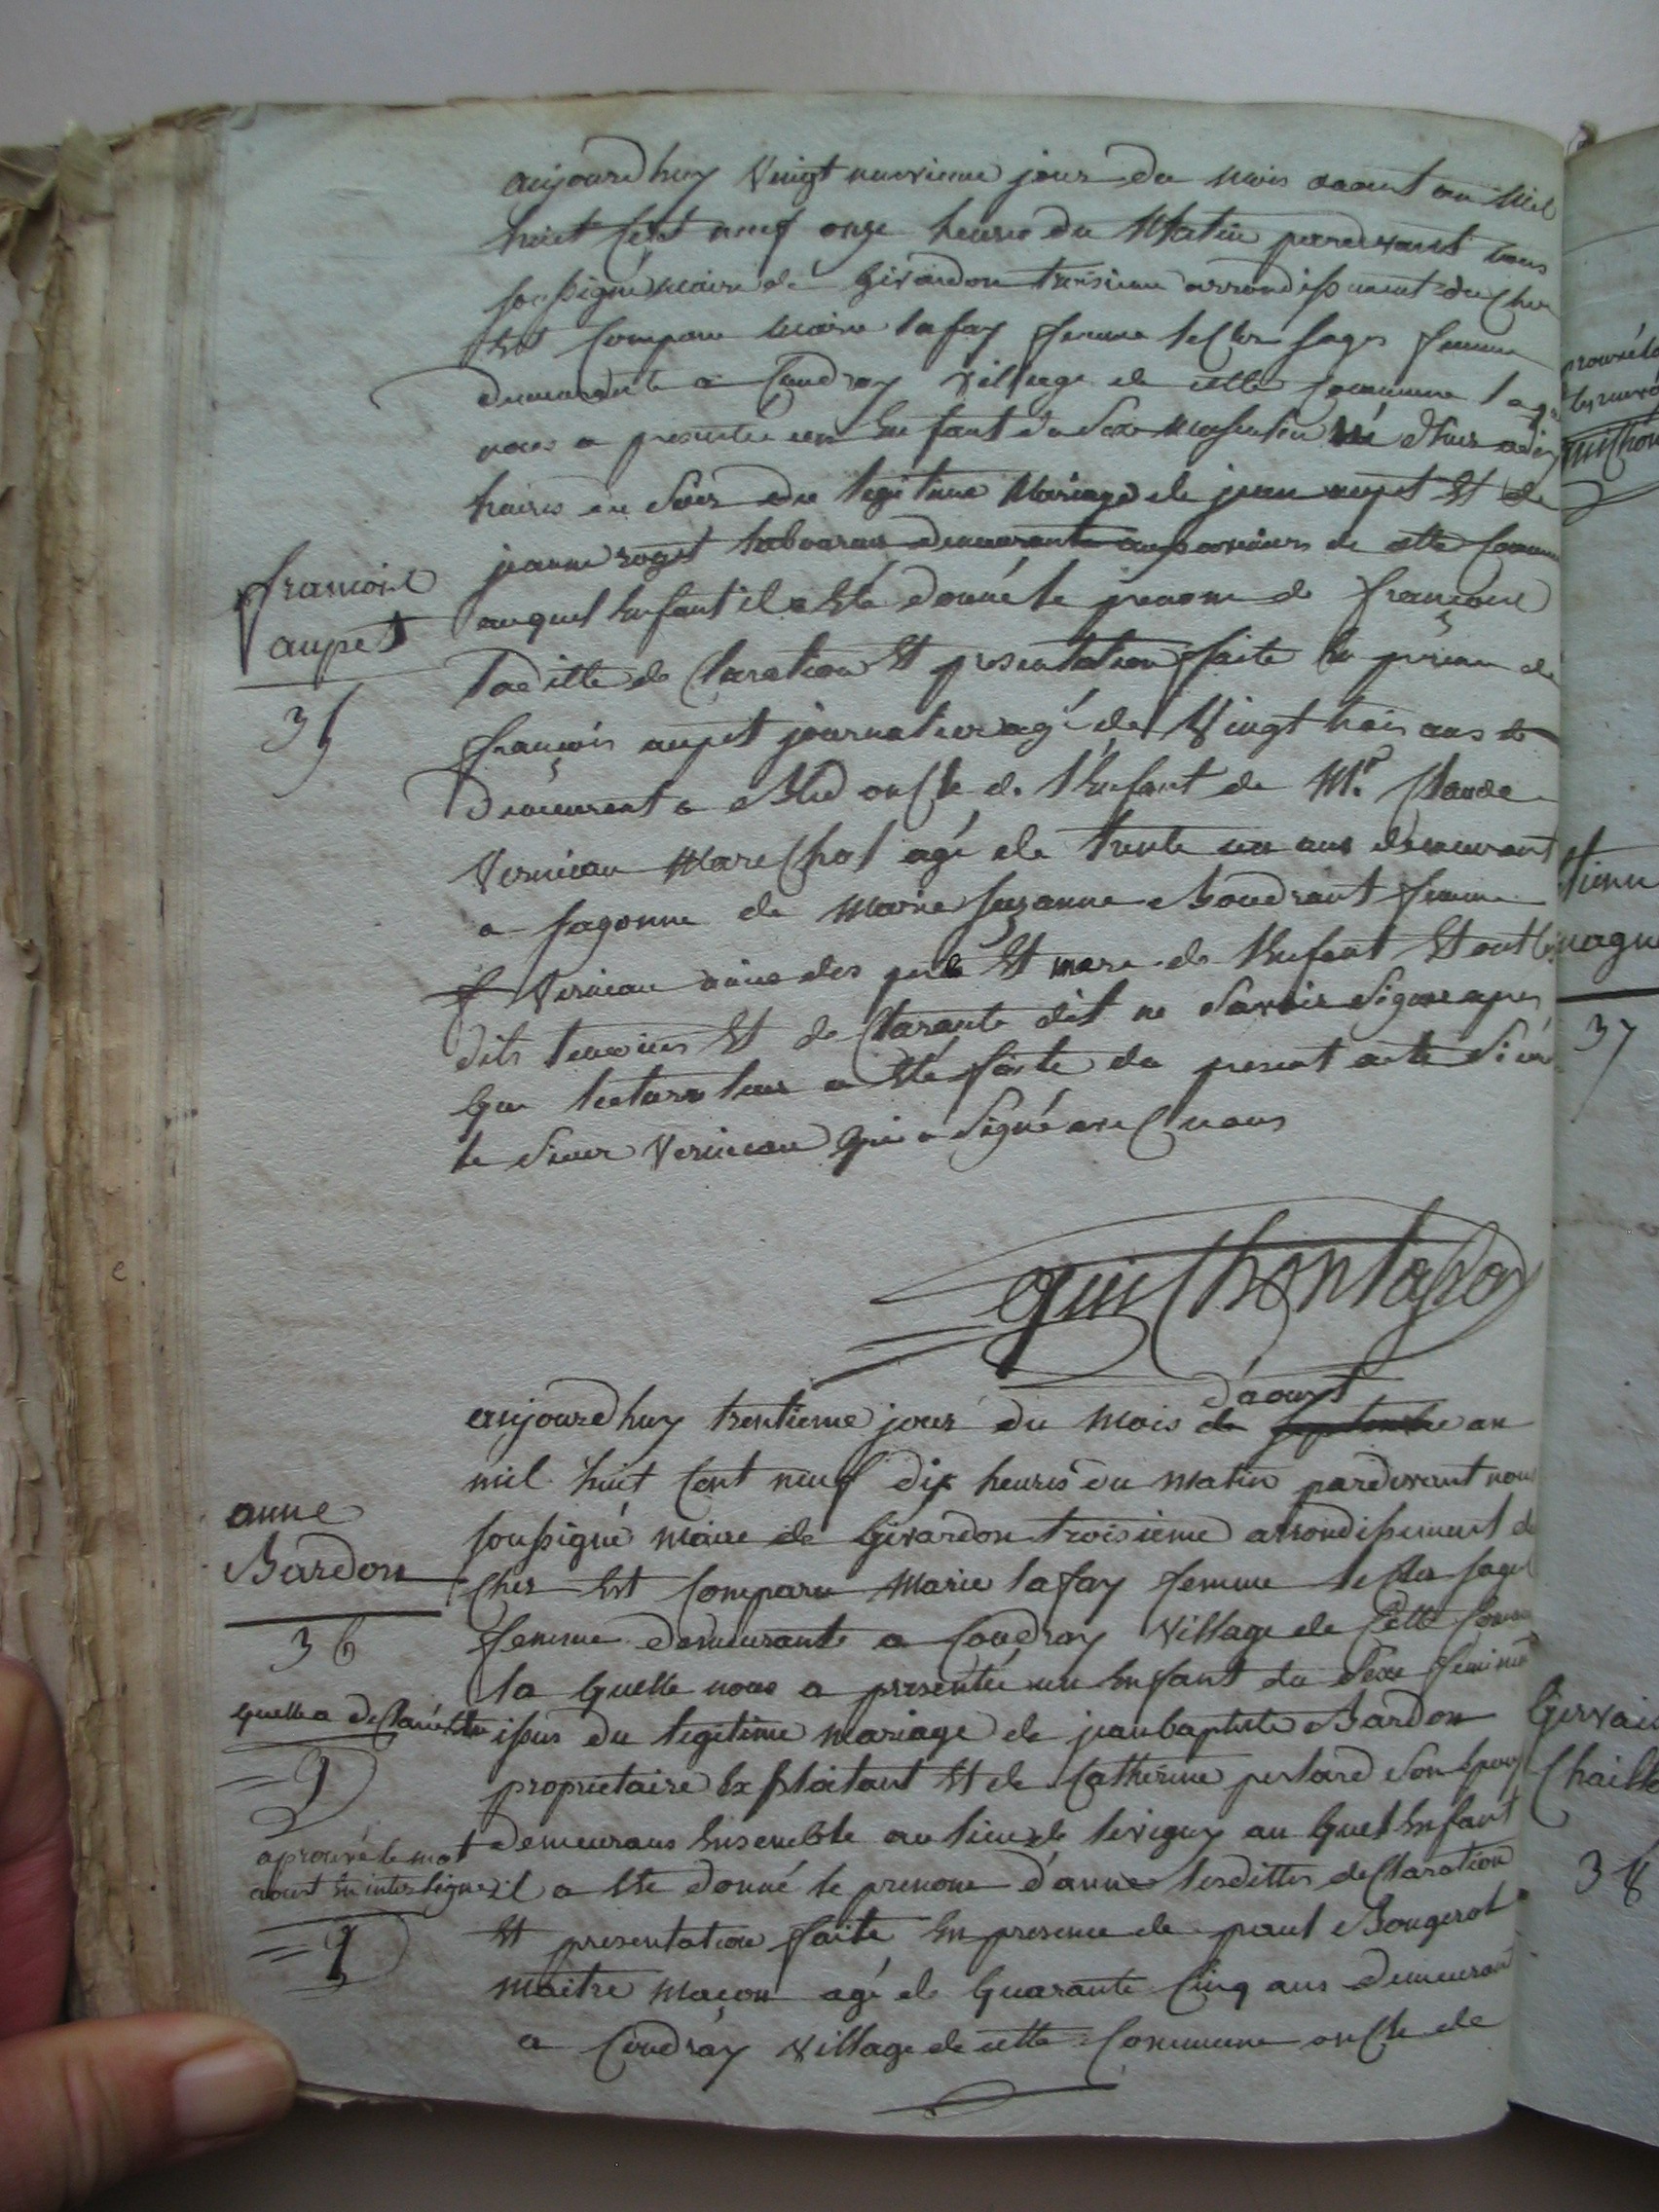 aujourdhuy Vingt neuvieme jour du mois daout an Mil
huit Cent neuf onze heures du Matin pardevant nous
soussigné maire de Givardon troisieme arrondissement du Cher
Est Comparu Marie lafay femme lecler sage femme
demeurante a Coudray village de cette Commune laq
nous a presentée un Enfant du Sexe Masculin né d'hier a dix
heures du Soir du legitime Mariage de jean aupet Et de
jeanne roget demeurante de cette Commune
auquel Enfant il a Eté donné le prenom de françois
laditte declaration Et presentation faite En presence de
françois aupet journalier agé de Vingt trois ans
demeurant a oncle de l'Enfant de Mr Claude
Verneau Marechal agé de trente un ans demeurant
a sagonne de Marie suzanne Boudrant femme
Verneau amie des pere Et mere de l'Enfant Et ont les
dits temoins Et declarante dit ne Savoir Signer apres
que lecture leur a Eté faite du present acte Sinon
le Sieur Verneau qui a Signé avec nous
françois
aupet
35
guichontapa
d'aoust
aujourdhuy trentieme jour du mois de septembre an
mil huit Cent neuf dix heures du matin pardevant nous
soussigné maire de Givardon troisieme arrondissement du
Cher Est Comparu Marie lafay femme lecler sage
femme demeurante a Coudray village de Cette Comm
la quelle nous a presentée un Enfant du Sexe feminin
issus du legitime mariage de jean baptiste Bardon
proprietaire Exploitant Et de Catherine perlard son Epouse
demeurans Ensemble au lieu de levigny au quel Enfant
il a Eté donné le prenom d'anne lesdittes declaration
Et presentation faite En presence de paul Bougerol
maitre maçon agé de quarante Cinq ans demeurant
a Coudray village de cette Commune oncle de
anne
Bardon
36
quelle a declaré Etre
aprouvé le mot
aout En interligne
37
Gervais
Chaill
38